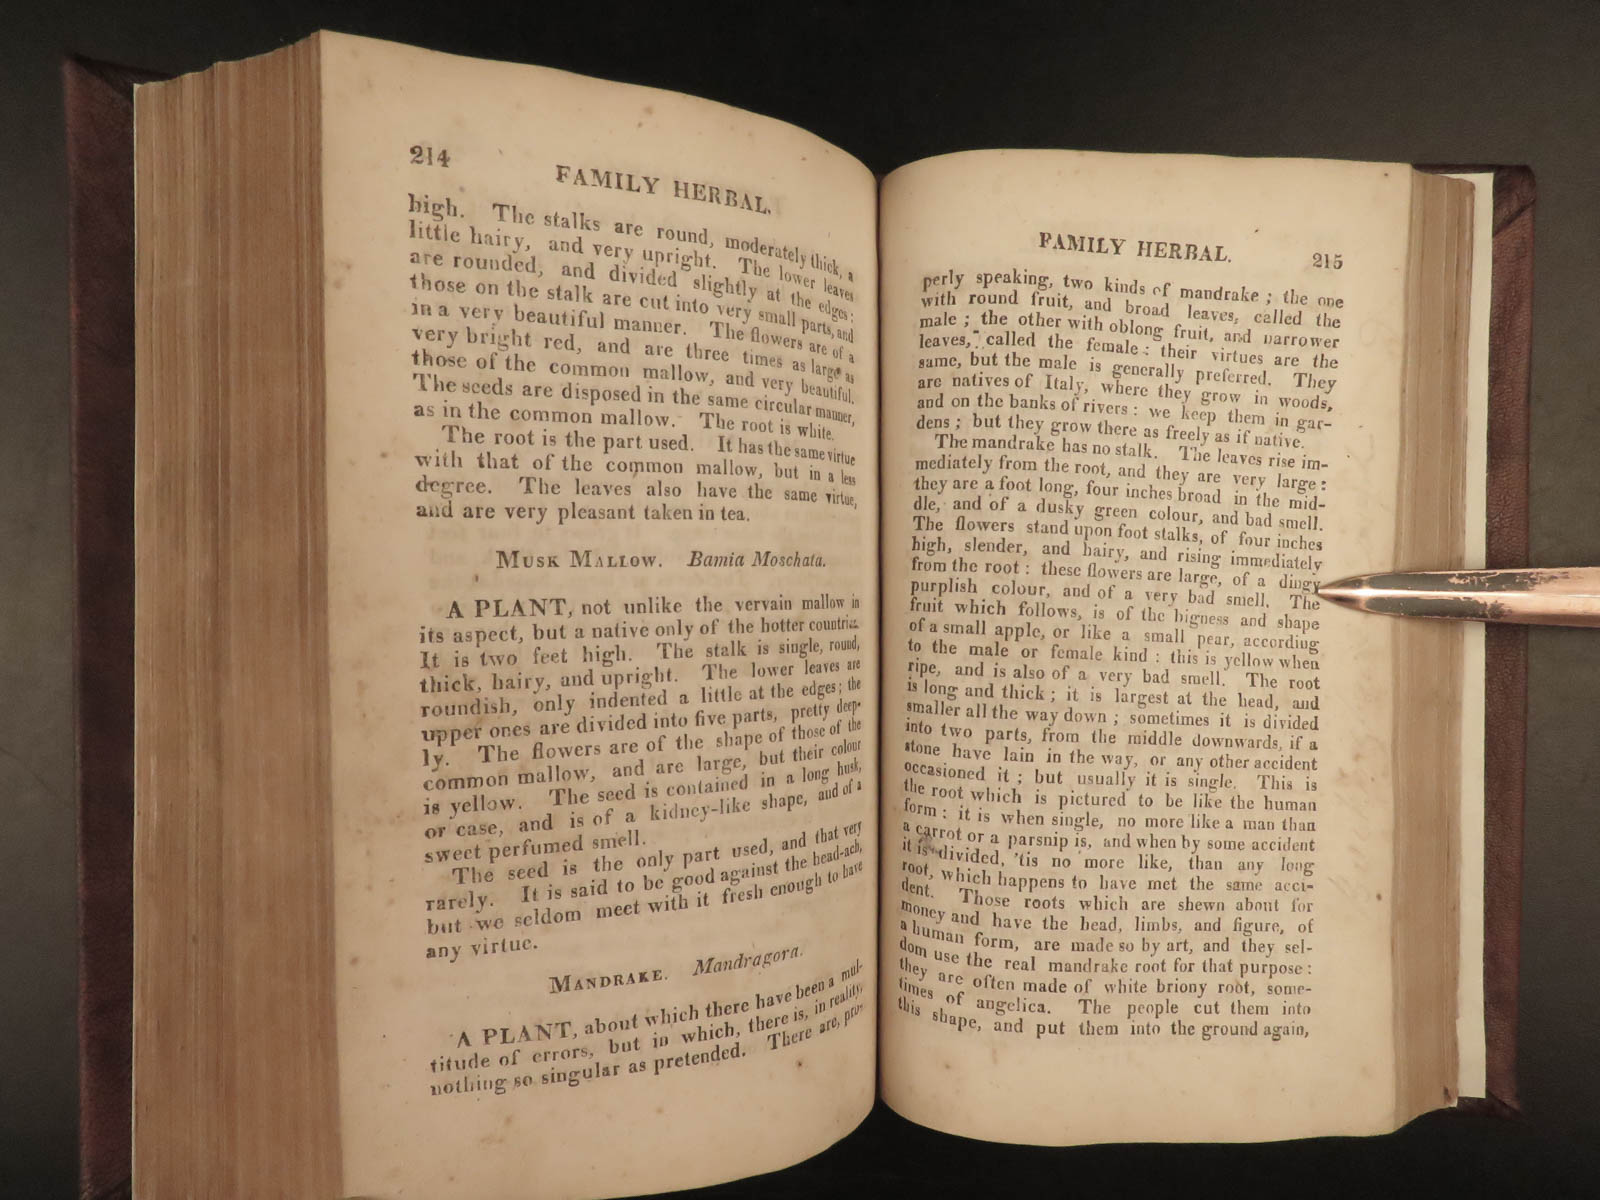 214
FAMILY HERBAL.
high. The stalks are round, moderately thick, a
little hairy, and very upright. The lower leaves
are rounded, and divided slightly at the edges:
those on the stalk are cut into very small parts, and
in a very beautiful manner. The flowers are of a
very bright red, and are three times as large as
those of the common mallow, and very beautiful.
The seeds are disposed in the same circular manner,
as in the common mallow. The root is white.
The root is the part used. It has the same virtue
with that of the common mallow, but in a less
degree. The leaves also have the same virtue,
and are very pleasant taken in tea.
MUSK MALLOW. Bamia Moschata.
A PLANT, not unlike the vervain mallow in
its aspect, but a native only of the hotter countries.
It is two feet high. The stalk is single, round,
thick, hairy, and upright. The lower leaves are
roundish, only indented a little at the edges; the
upper ones are divided into five parts, pretty deep-
ly. The flowers are of the shape of those of the
common mallow, and are large, but their colour
is yellow. The seed is contained in a long husk,
or case, and is of a kidney-like shape, and of a
sweet perfumed smell.
The seed is the only part used, and that very
rarely. It is said to be good against the head-ach,
but we seldom meet with it fresh enough to have
any virtue.
MANDRAKE. Mandragora.
A PLANT, about which there have been a mul-
titude of errors, but in which, there is, in reality,
nothing so singular as pretended. There are, pro-
FAMILY HERBAL.
215
perly speaking, two kinds of mandrake; the one
with round fruit, and broad leaves, called the
male; the other with oblong fruit, and narrower
leaves, called the female: their virtues are the
same, but the male is generally preferred. They
are natives of Italy, where they grow in woods,
and on the banks of rivers: we keep them in gar-
dens; but they grow there as freely as if native.
The mandrake has no stalk. The leaves rise im-
mediately from the root, and they are very large:
they are a foot long, four inches broad in the mid-
dle, and of a dusky green colour, and bad smell.
The flowers stand upon foot stalks, of four inches
high, slender, and hairy, and rising immediately
from the root: these flowers are large, of a dingy
purplish colour, and of a very bad smell. The
fruit which follows, is of the bigness and shape
of a small apple, or like a small pear, according
to the male or female kind: this is yellow when
ripe, and is also of a very bad smell. The root
is long and thick; it is largest at the head, and
smaller all the way down; sometimes it is divided
into two parts, from the middle downwards, if a
stone have lain in the way, or any other accident
occasioned it; but usually it is single. This is
the root which is pictured to be like the human
form: it is when single, no more like a man than
a carrot or a parsnip is, and when by some accident
it is divided, 'tis no more like, than any long
root, which happens to have met the same acci-
dent. Those roots which are shewn about for
money and have the head, limbs, and figure, of
a human form, are made so by art, and they sel-
dom use the real mandrake root for that purpose:
they are often made of white briony root, some-
times of angelica. The people cut them into
this shape, and put them into the ground again,